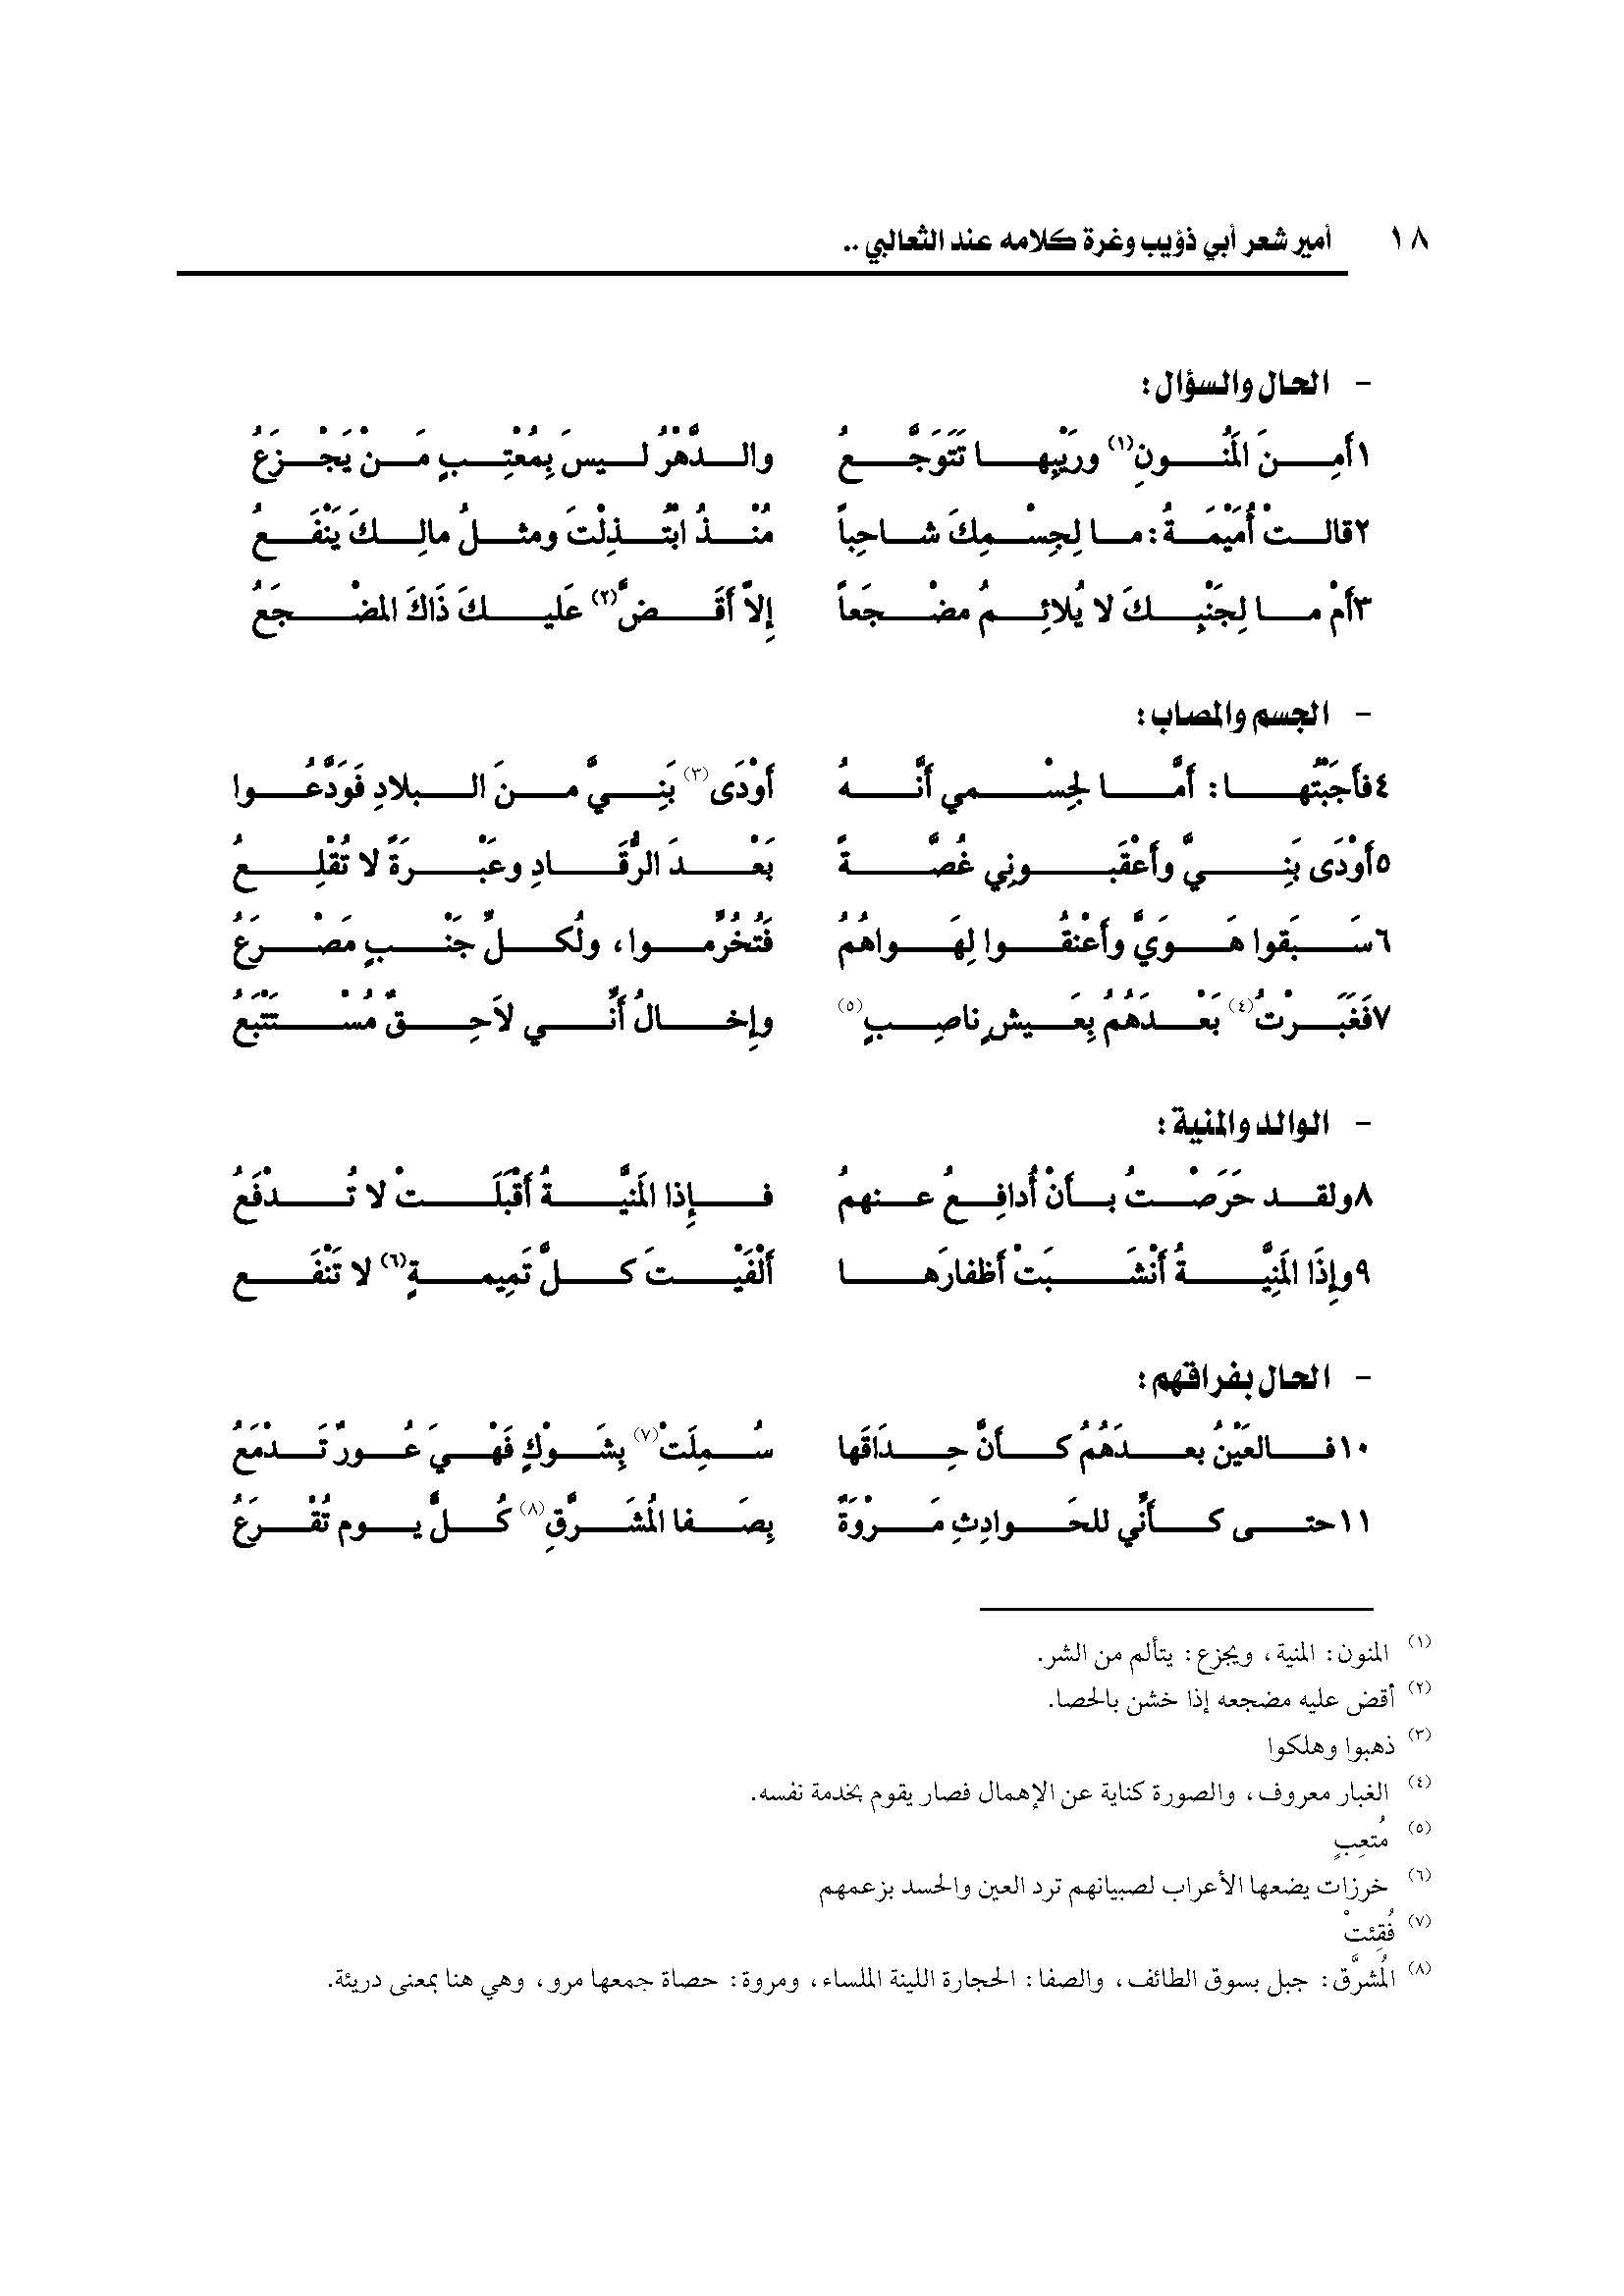 ١٨ أمير شعر أبي ذؤيب وغرة كلامه عند الثعالبي ..
- الحال والسؤال:
١أَمِنَ المَنُونِ(١) ورَيْبِها تَتَوَجَّعُ والدَّهْرُ ليسَ بِمُعْتِبٍ مَنْ يَجْزَعُ
٢قالتْ أُمَيْمَةُ: ما لِجِسْمِكَ شاحِباً مُنْذُ ابْتُذِلْتَ ومثلُ مالِكَ يَنْفَعُ
٣أَمْ ما لِجَنْبِكَ لا يُلائِمُ مضْجَعاً إِلاَّ أَقَضَّ(٢) عَليكَ ذَاكَ المضْجَعُ
- الجسم والمصاب:
٤فأَجَبْتُها: أَمَّا لجِسْمي أَنَّهُ أَوْدَى(٣) بَنِيَّ منَ البلادِ فَوَدَّعُوا
٥أَوْدَى بَنِيَّ وأَعْقَبونِي غُصَّةً بَعْدَ الرُّقَادِ وعَبْرَةً لا تُقْلِعُ
٦سَبَقوا هَوَيَّ وأَعْنَقُوا لِهَواهُمُ فَتُخُرِّموا، ولُكلِّ جَنْبٍ مَصْرَعُ
٧فَغَبَرْتُ(٤) بَعْدَهُمُ بِعَيشٍ ناصِبٍ(٥) وإِخالُ أَنِّي لاَحِقٌ مُسْتَتْبَعُ
- الوالد والمنية:
٨ولقد حَرَصْتُ بأَنْ أُدافِعُ عنهمُ فإِذا المَنيَّةُ أَقْبَلَتْ لا تُدْفَعُ
٩وإِذَا المَنِيَّةُ أَنْشَبَتْ أَظفارَها أَلْفَيْتَ كلَّ تَمِيمةٍ(٦) لا تَنْفَع
- الحال بفراقهم:
١٠فالعَيْنُ بعدَهُمُ كأَنَّ حِدَاقَها سُمِلَتْ(٧) بِشَوْكٍ فَهْيَ عُورٌ تَدْمَعُ
١١حتى كأَنِّي للحَوادِثِ مَرْوَةٌ بِصَفا المُشَرَّقِ(٨) كُلَّ يوم تُقْرَعُ
(١) المنون: المنية، ويجزع: يتألم من الشر.
(٢) أقض عليه مضجعه إذا خشن بالحصا.
(٣) ذهبوا وهلكوا
(٤) الغبار معروف، والصورة كناية عن الإهمال فصار يقوم بخدمة نفسه.
(٥) مُتعِبٍ
(٦) خرزات يضعها الأعراب لصبيانهم ترد العين والحسد بزعمهم
(٧) فُقِئتْ
(٨) المُشرَّق: جبل بسوق الطائف، والصفا: الحجارة اللينة الملساء، ومروة: حصاة جمعها مرو، وهي هنا بمعنى دريئة.